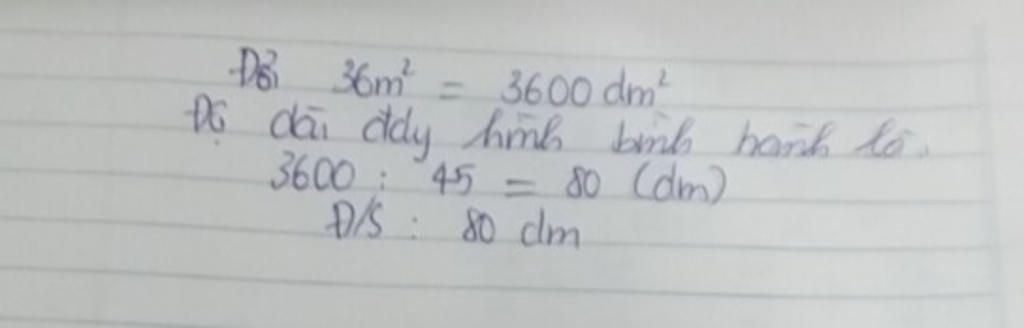 Đổi 36m² = 3600 dm²
Độ dài đáy hình bình hành là.
3600 : 45 = 80 (dm)
Đ/S : 80 dm